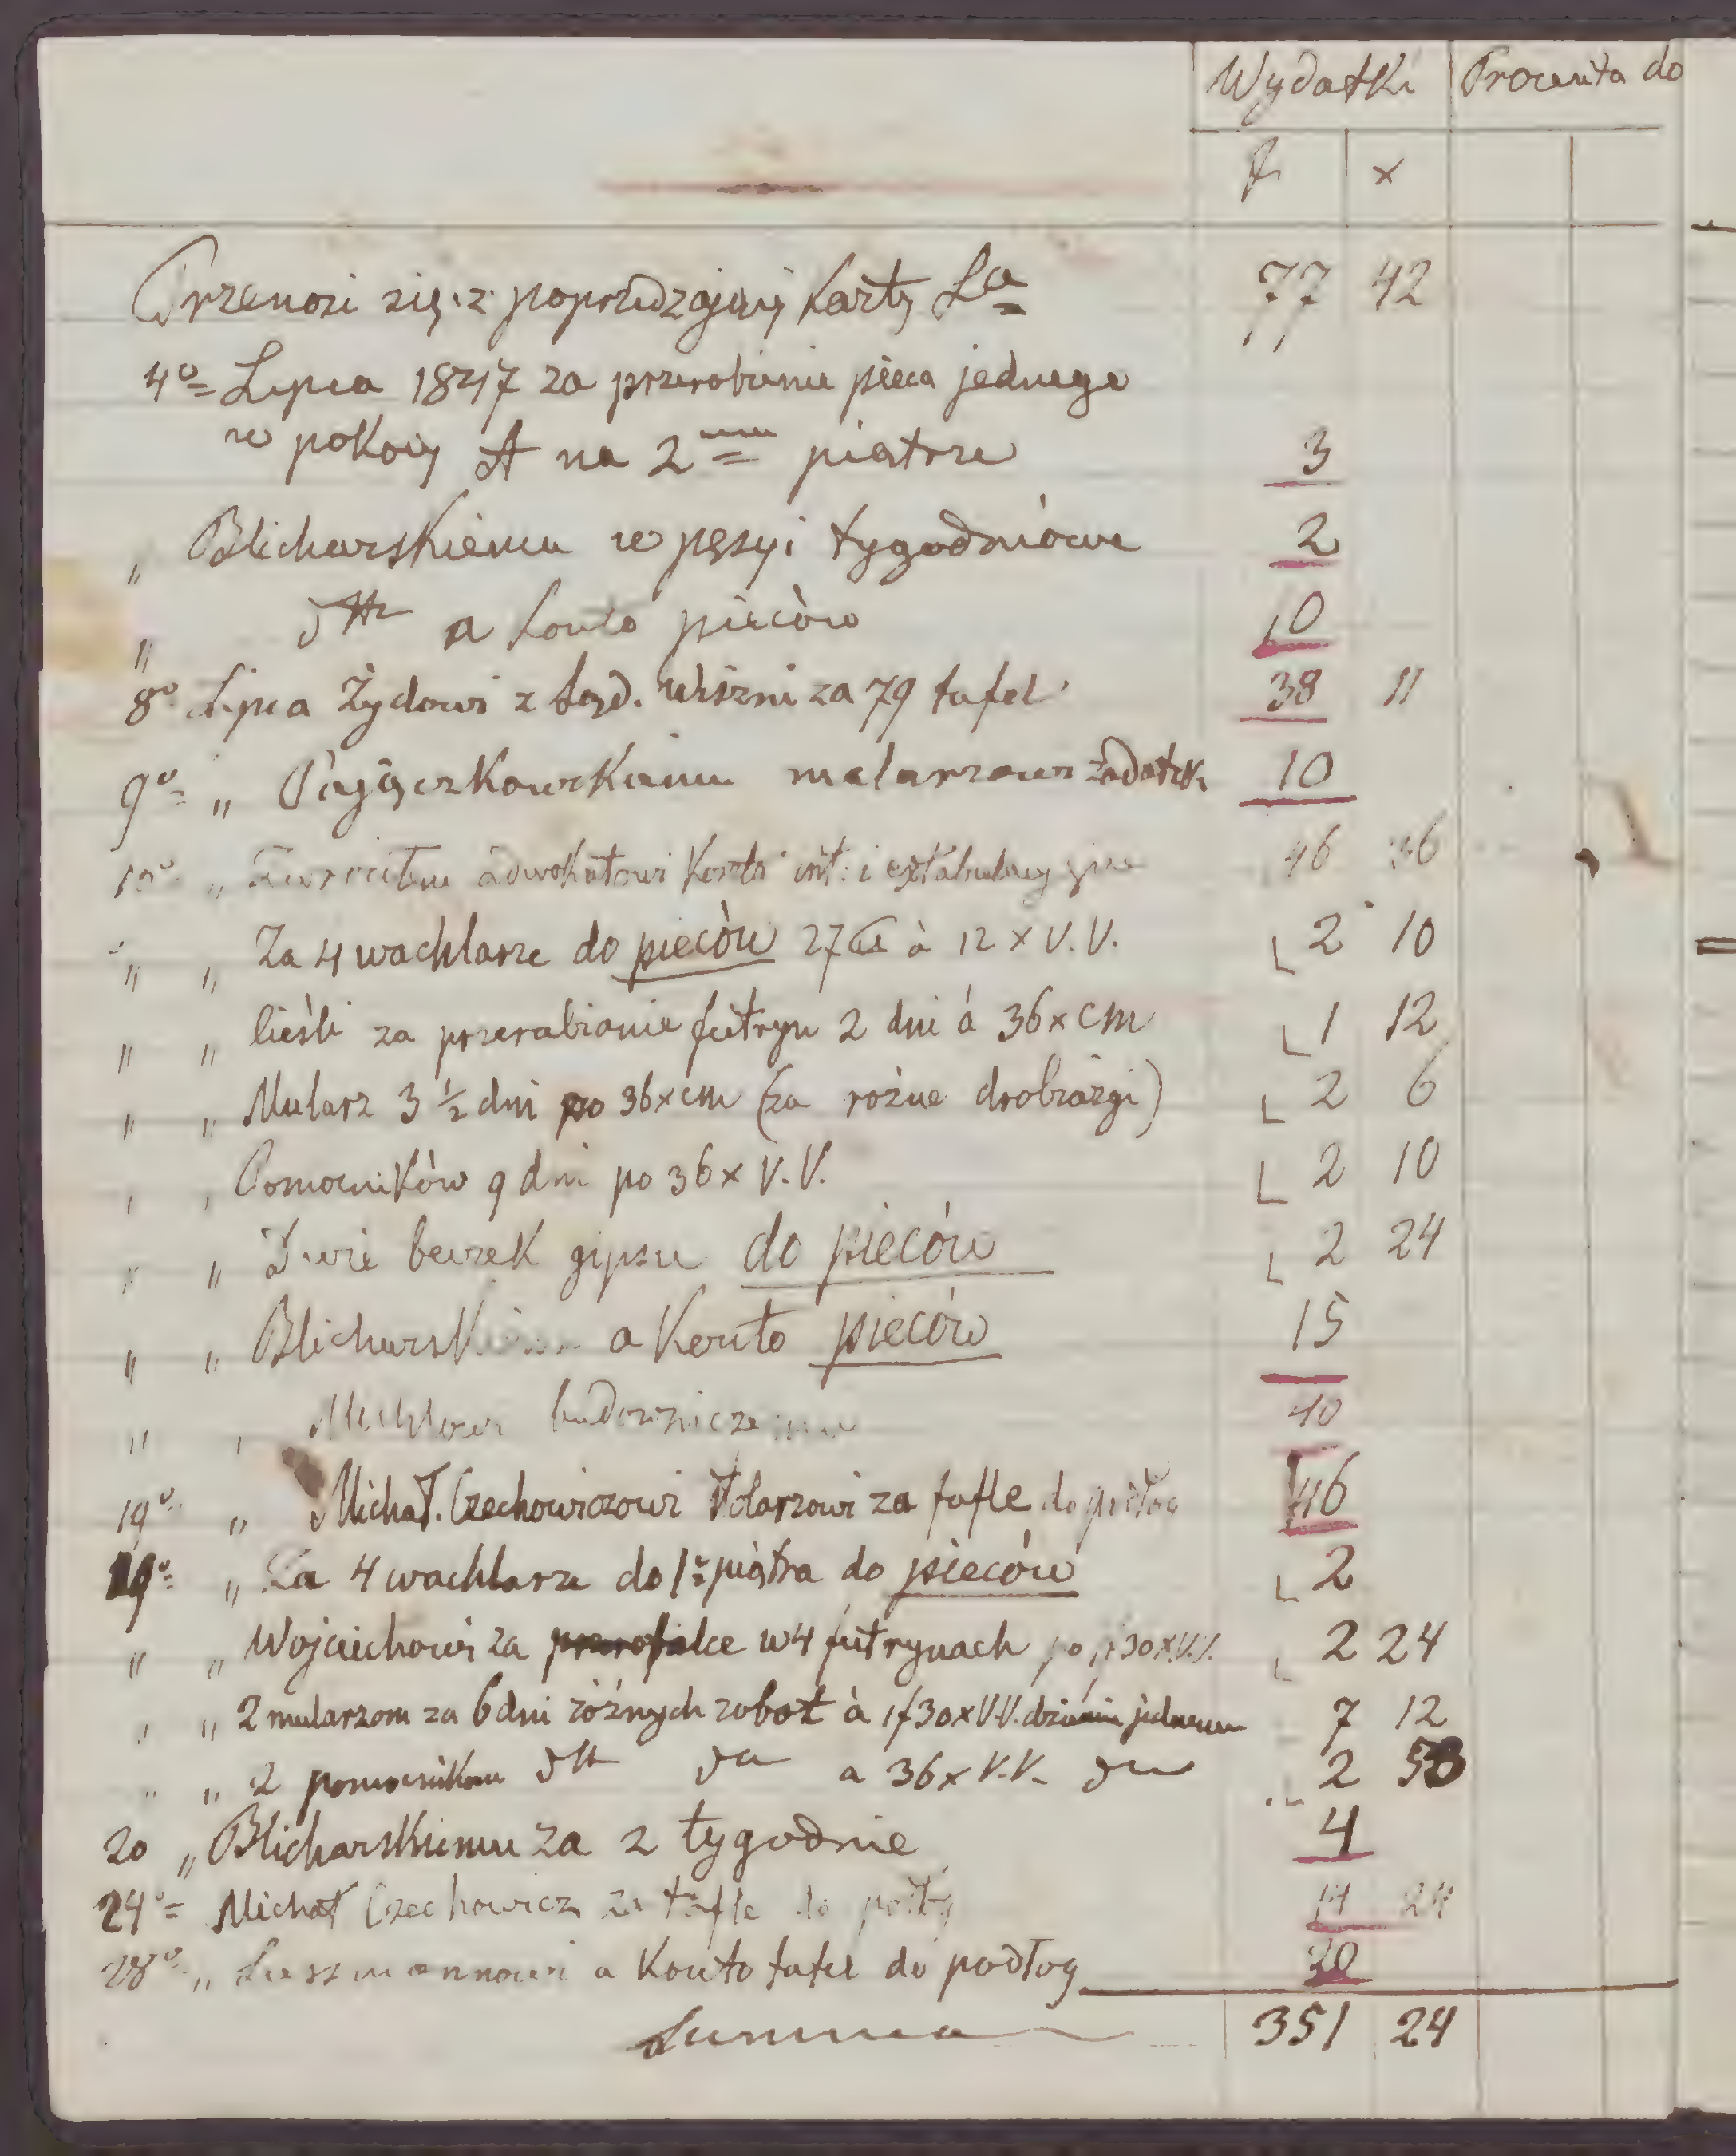 Wydatki Procenta do
f x
Przenosi się z poprzedzającej karty La 77 42
4o Lipca 1847 za przerobienie pieca jednego
w pokoiy A na 2 piątrze 3
„ Blicharskiemu w pęsyi tygodniowe 2
„ dtto a konto pieców 10
8o Lipca Żydowi z Sąd. Wiszni za 79 tafel 38 11
9o „ Pajączkowskiemu malarzowi zadatek 10
10o „ adwokatowi koszta int: i extabulacyjne 46 36
„ „ Za 4 wachlarze do pieców 27 à 12 x V.V. 2 10
„ „ Cieśli za przerabianie futryn 2 dni á 36x CM 1 12
„ „ Mularz 3 1/2 dni po 36x cm (za rożne drobiazgi) 2 6
„ „ Pomocników 9 dni po 36x V.V. 2 10
„ „ Dwie beczek gipsu do pieców 2 24
„ „ Blicharskiemu a Konto pieców 15
„ „ budowniczemu 40
19o „ Michał. Czechowiczowi stolarzowi za tafle do podłog 46
19o „ Za 4 wachlarze do 1o piątra do pieców 2
„ „ Wojciechowi za w 4 futrynach po 30x V.V. 2 24
„ „ 2 mularzom za 6 dni różnych robot à 1f30x V.V. dziennie jednemu 7 12
„ „ 2 pomocnikom dtt dtt a 36x V.V. dtt 2 53
20 „ Blicharskiemu za 2 tygodnie 4
24o Michał Czechowicz za tafle do podłog 14 24
28o „ a Konto tafel do podłog 20
Summa 351 24